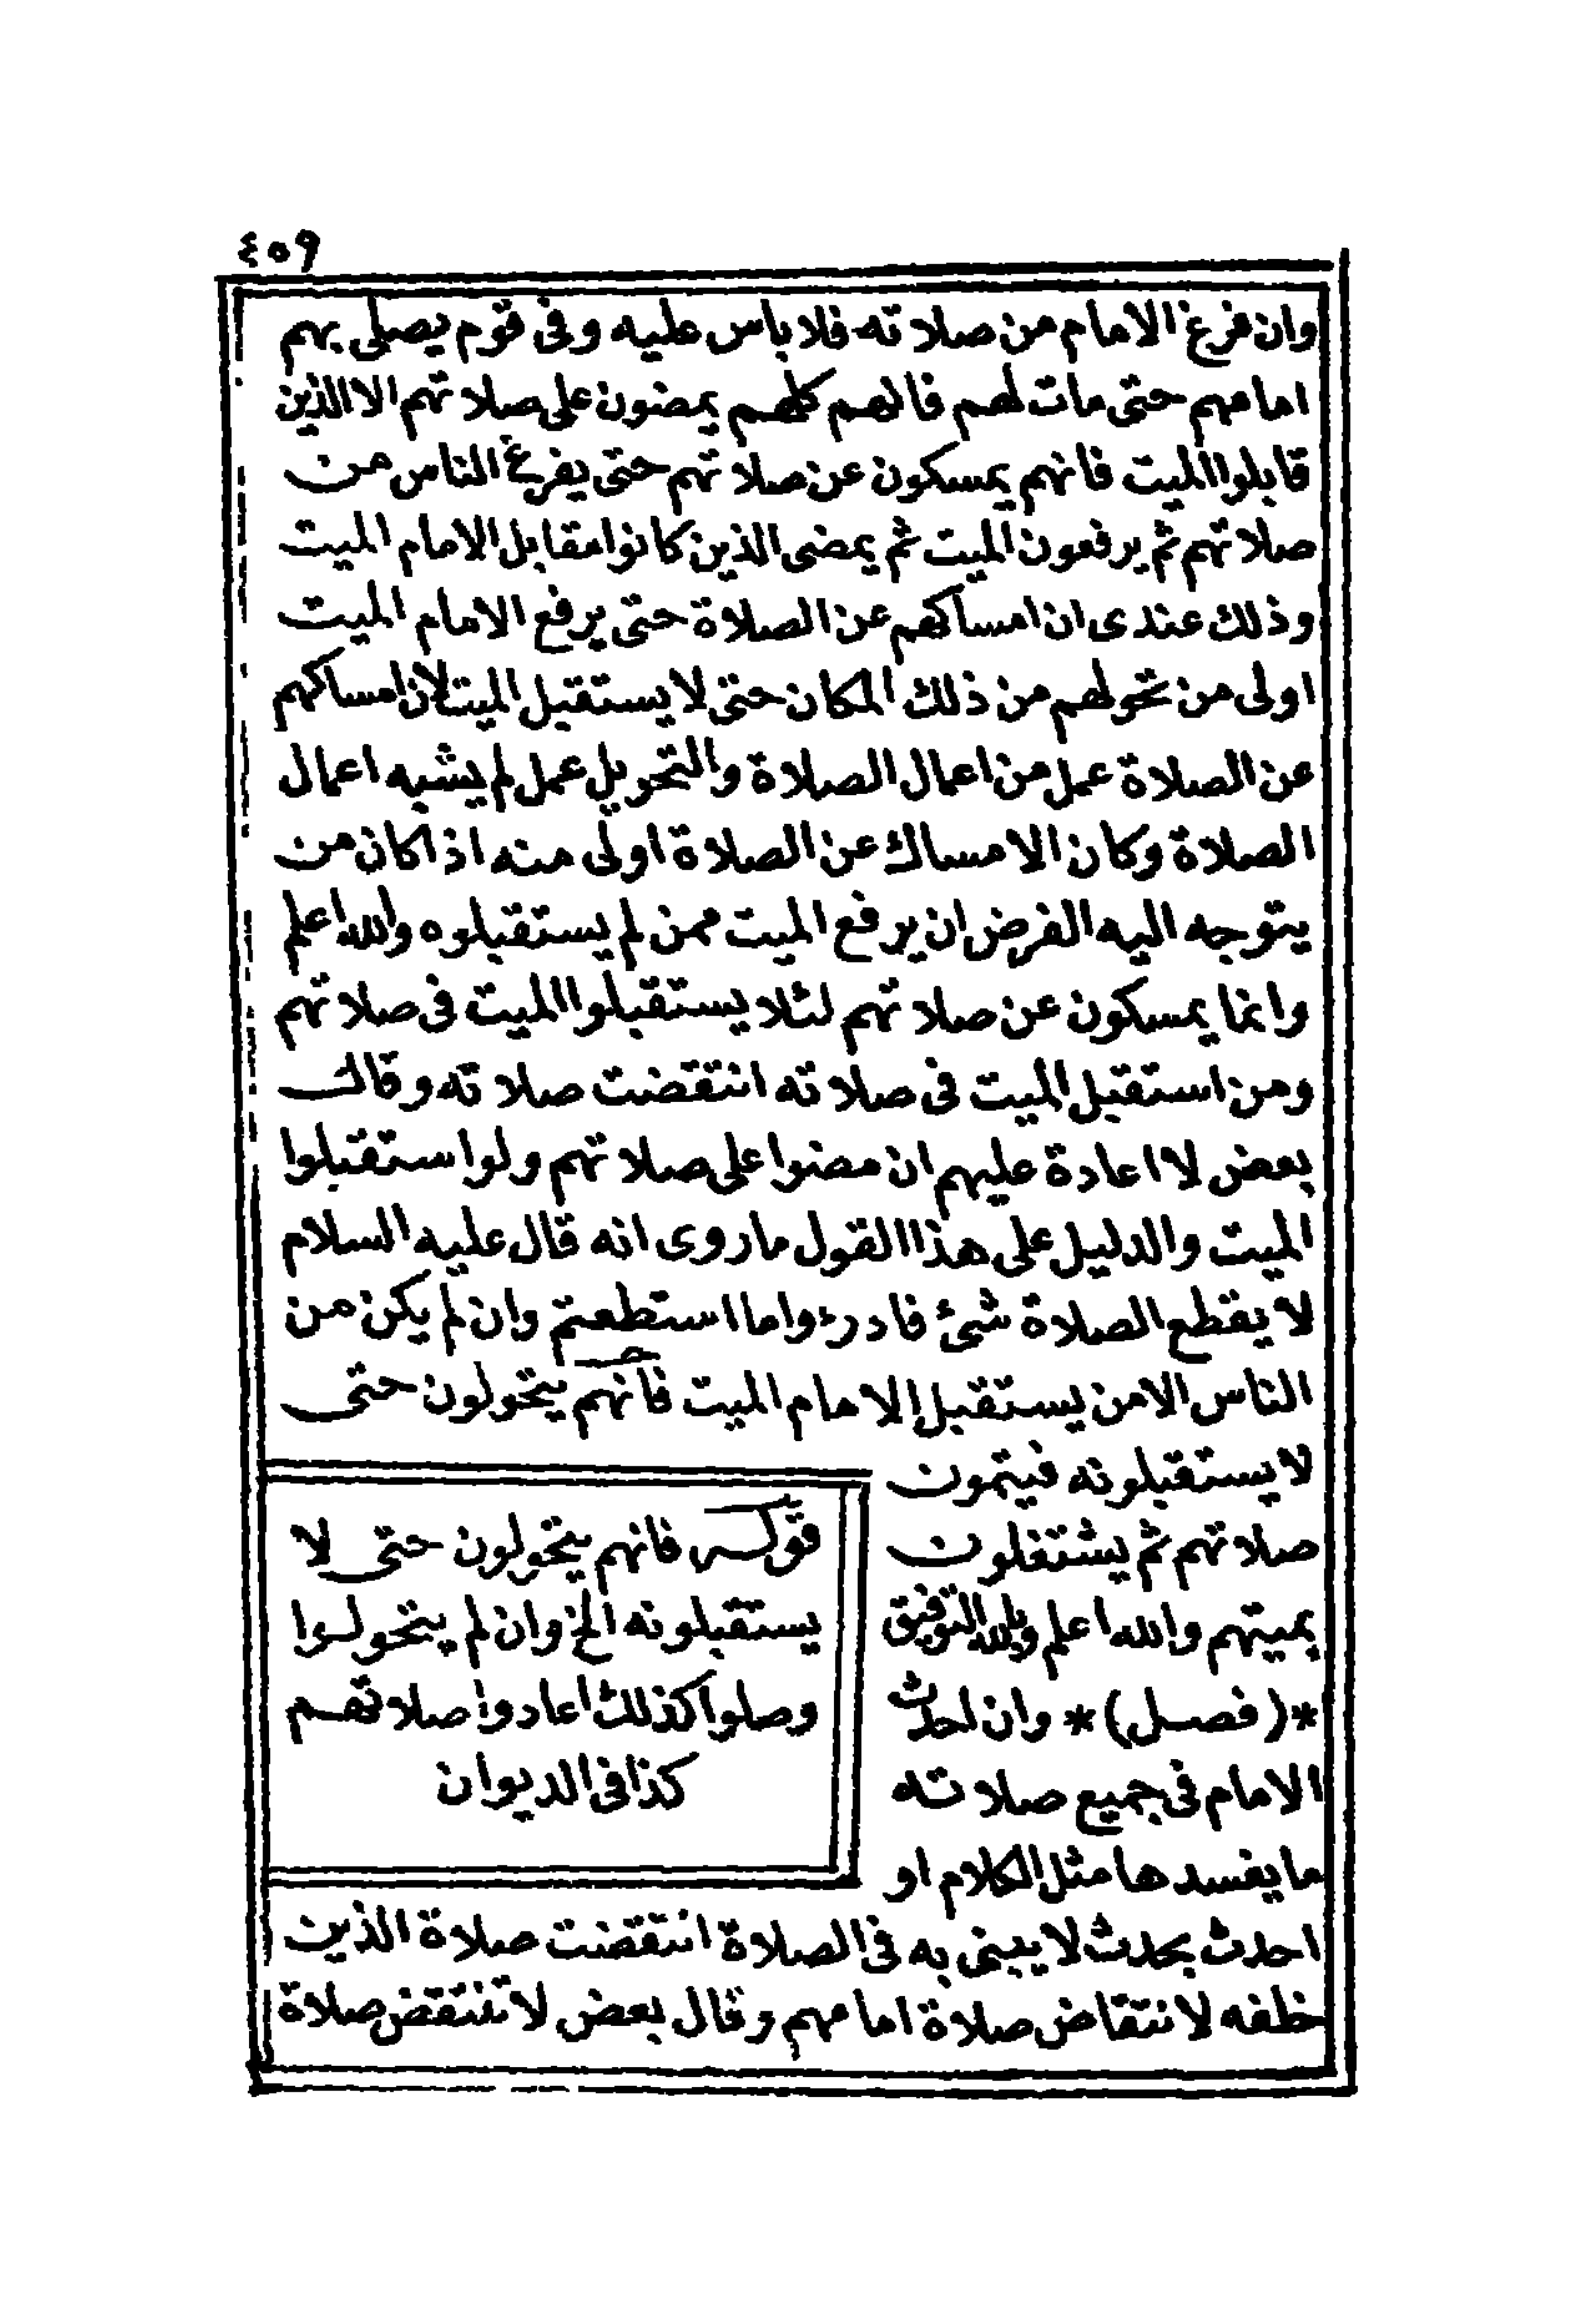 ٤٥٩
وان فرغ الامام من صلاته فلا باس عليه وفى قوم يصلى بهم
امامهم حتى مات لهم فالهم كلهم يمضون على صلاتهم الا الذين
قابلوا الميت فانهم يمسكون عن صلاتهم حتى يفرغ الناس من
صلاتهم ثم يرفعون الميت ثم يمضى الذين كانوا مقابل الامام الميت
وذلك عندى ان امساكهم عن الصلاة حتى يرفع الامام الميت
اولى من تحولهم من ذلك المكان حتى لا يستقبل الميت لان امساكهم
عن الصلاة عمل من اعمال الصلاة والتحويل عمل لم يشبه اعمال
الصلاة وكان الامساك عن الصلاة اولى منه اذا كان من
يتوجه اليه الفرض ان يرفع الميت ممن لم يستقبلوه والله اعلم
وانما يمسكون عن صلاتهم لئلا يستقبلوا الميت فى صلاتهم
ومن استقبل الميت فى صلاته انتقضت صلاته وقال
بعض لا اعادة عليهم ان مضوا على صلاتهم ولو استقبلوا
الميت والدليل على هذا القول ما روى انه قال عليه السلام
لا يقطع الصلاة شئ فادرءوا ما استطعتم وان لم يكن من
الناس الا من يستقبل الامام الميت فانهم يتحولون حتى
لا يستقبلونه فيتمون
صلاتهم ثم يشتغلون
بميتهم والله اعلم وبالله التوفيق
*(فصل)* وان احدث
الامام فى جميع صلاته
ما يفسدها مثل الكلام او
احدث بحدث لا يبنى به فى الصلاة انتقضت صلاة الذين
خلفه لانتقاض صلاة امامهم وقال بعض لا تنتقض صلاة
قوله فانهم يتحولون حتى لا
يستقبلونه الخ وان لم يتحولوا
وصلوا كذلك اعادوا صلاتهم
كذا فى الديوان